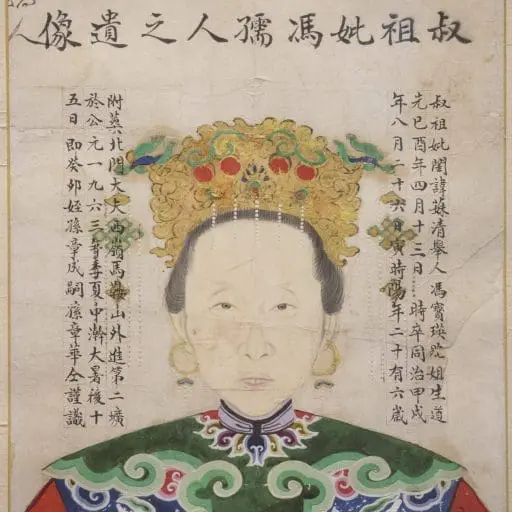 叔祖妣馮孺人之遺像
叔祖妣閨諱蘇清舉人馮寶瑛胞姐生道
光己酉年四月十三日 時卒同治甲戌
年八月二十六日寅時陽年二十有六歲
附葬北門大大西嶺馬鞍山外進第二壙
於公元一九六三年季夏中澣大暑後十
五日即癸卯姪孫章成嗣孫章華仝謹識